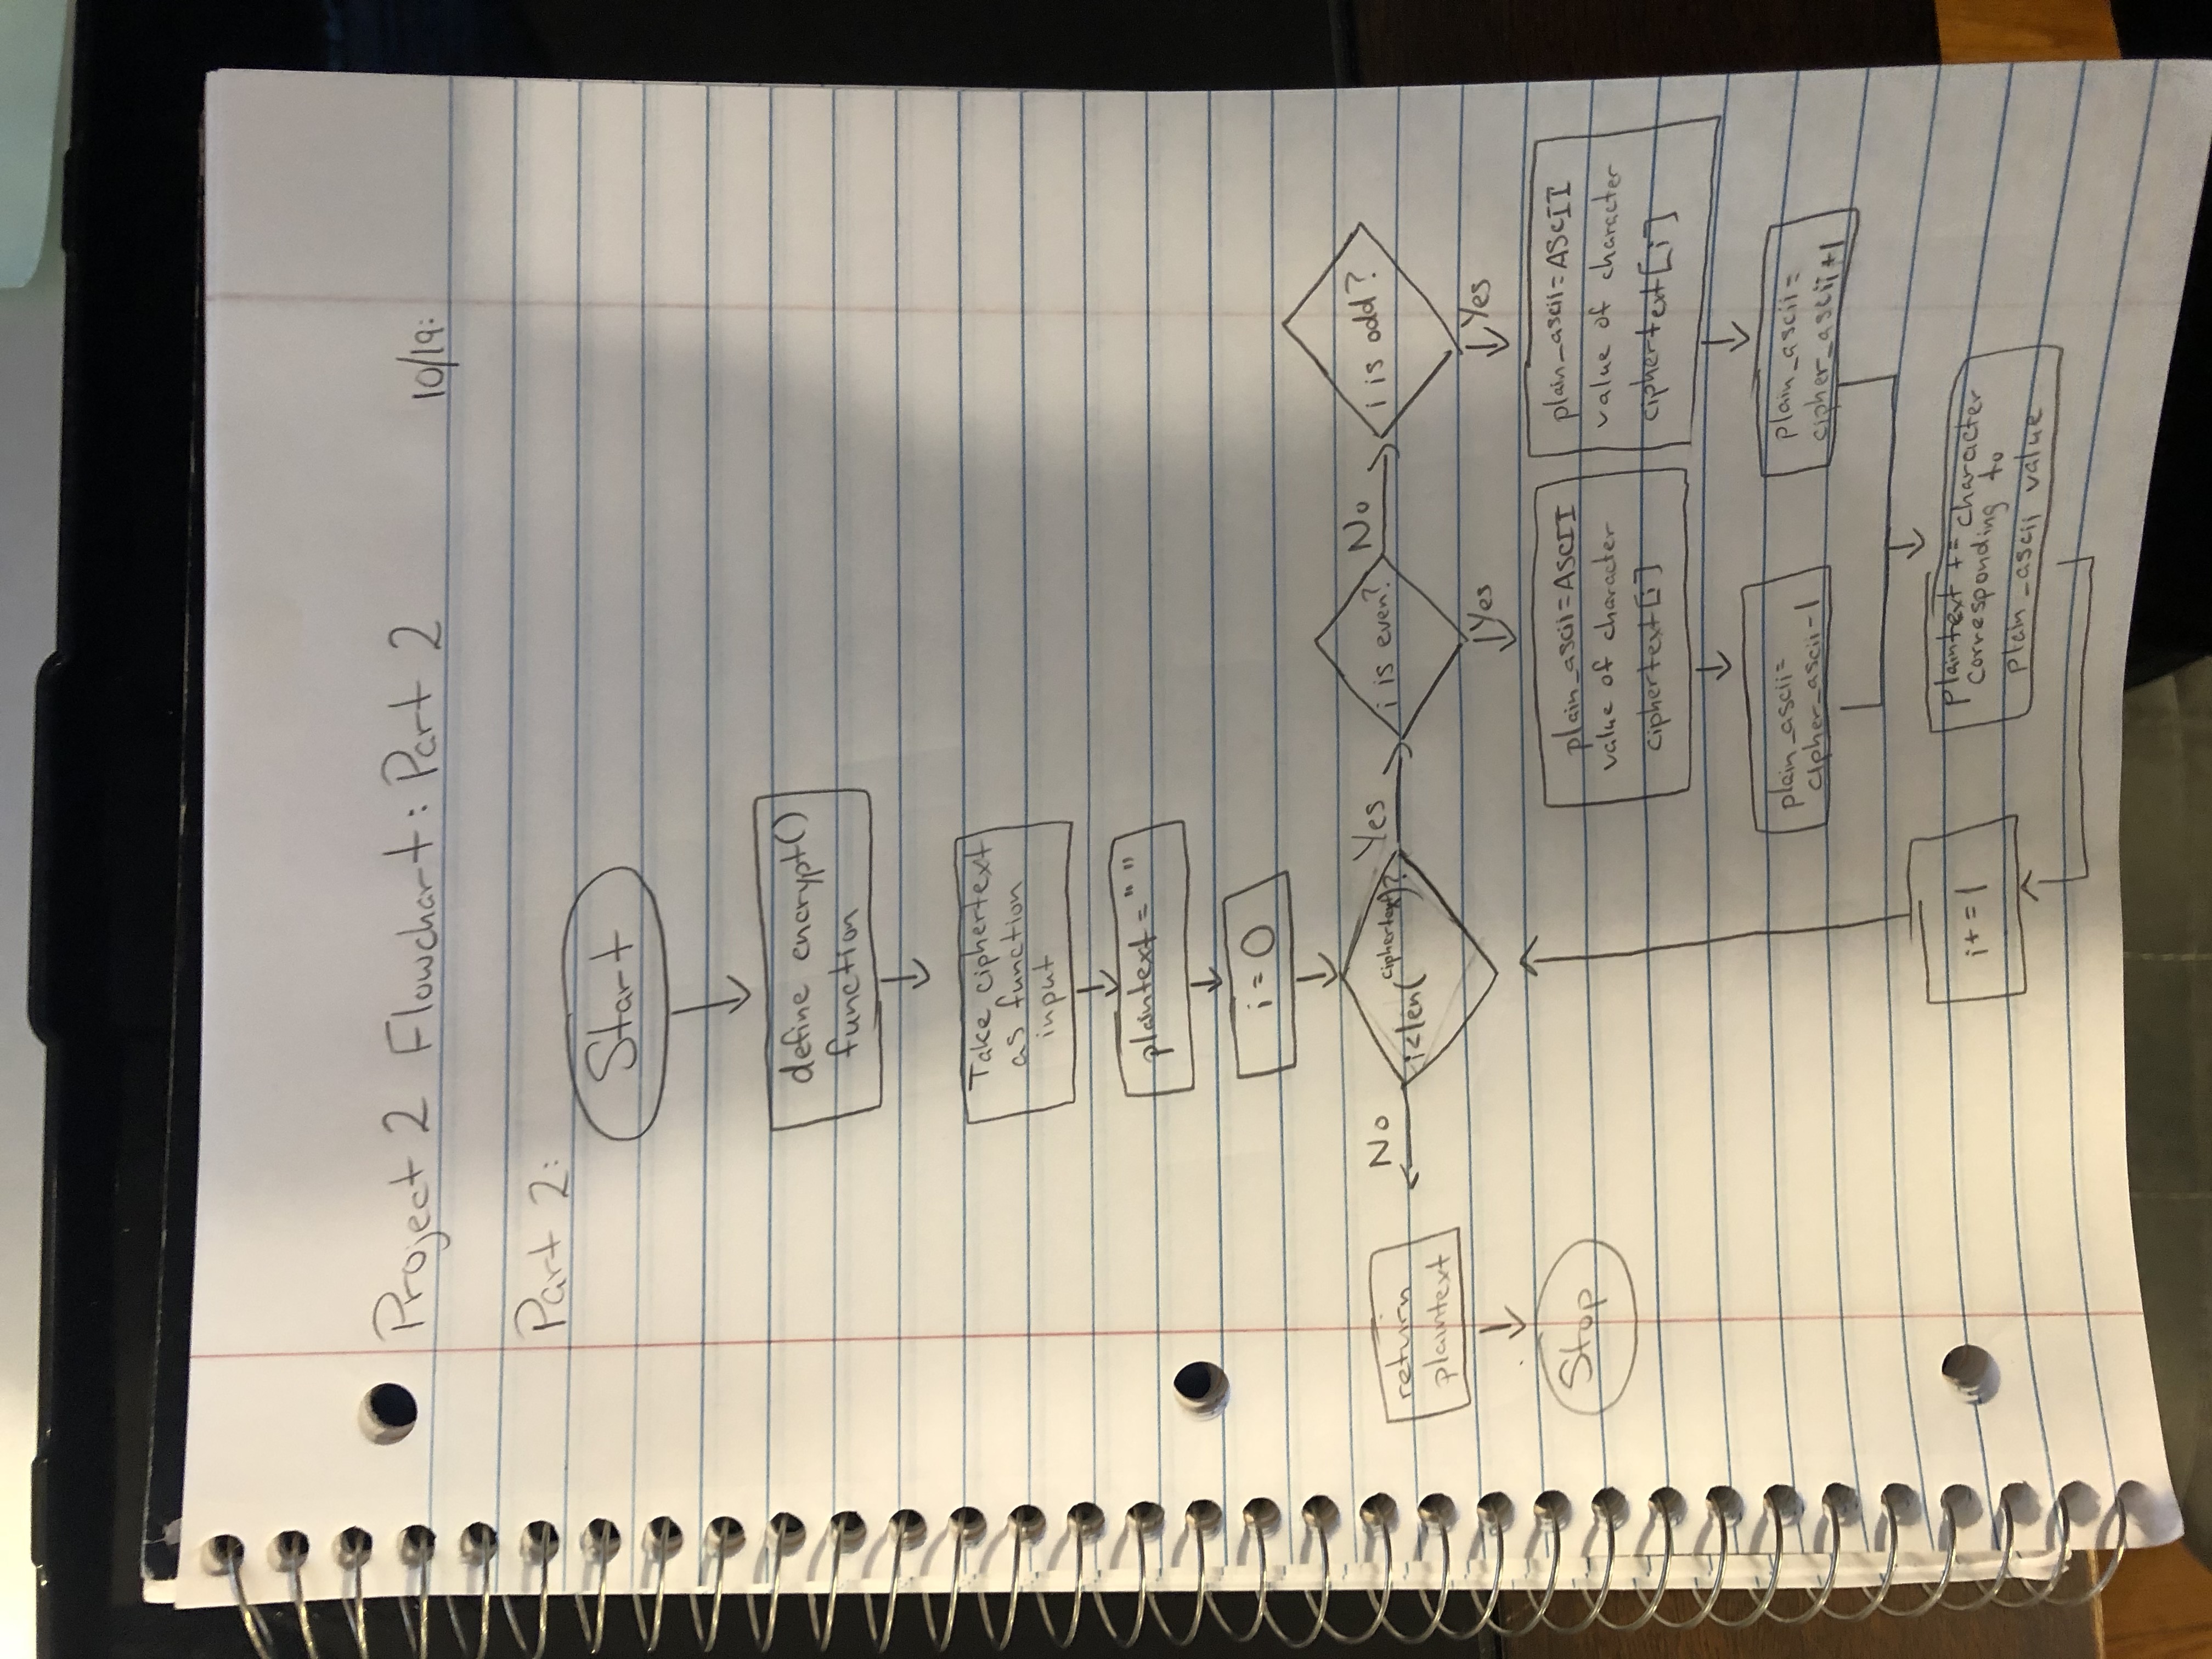 Project 2 Flowchart: Part 2
10/19:
Part 2:
Start
define encrypt()
function
Take ciphertext
as function
input
plaintext = " "
i = 0
i<len(ciphertext)?
No
return
plaintext
Stop
Yes
i is even?
No
i is odd?
Yes
plain_ascii=ASCII
value of character
ciphertext[i]
plain_ascii=
cipher_ascii-1
Yes
plain_ascii=ASCII
value of character
ciphertext[i]
plain_ascii=
cipher_ascii+1
plaintext += character
corresponding to
plain_ascii value
i+=1